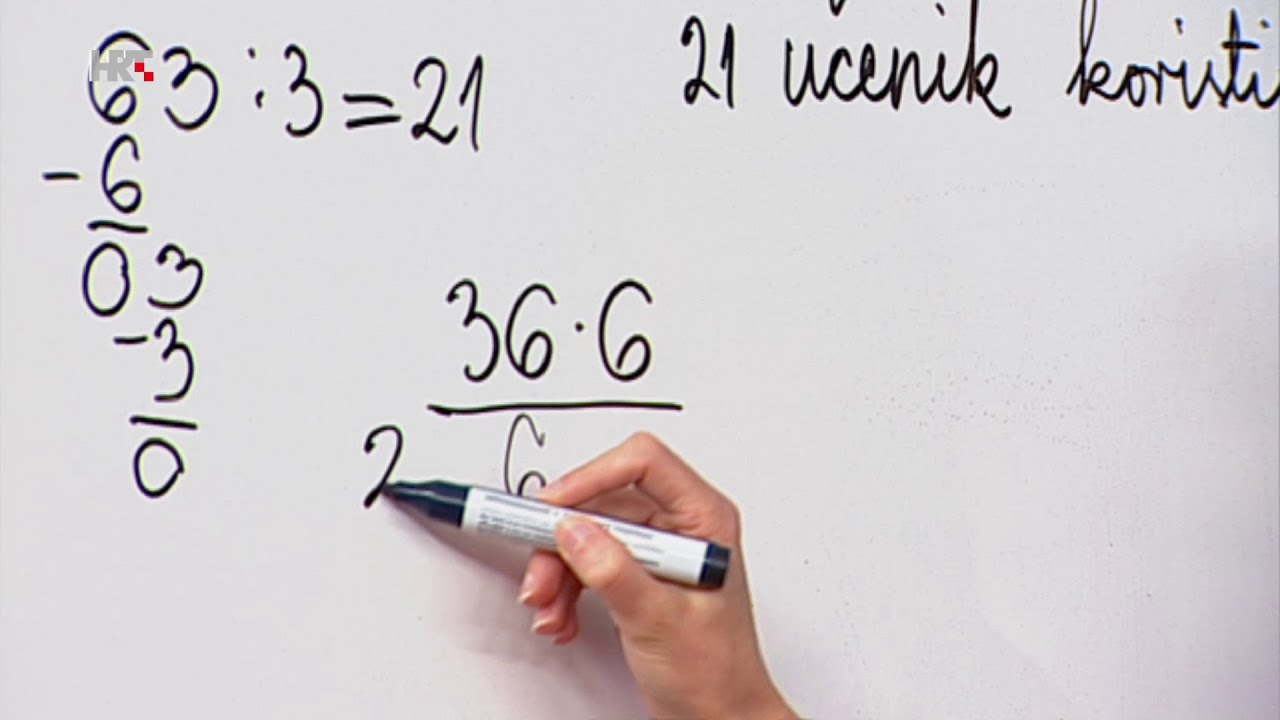 HRT
63:3=21
-6
03
-3
0
21 učenik koristi
36·6
2 6